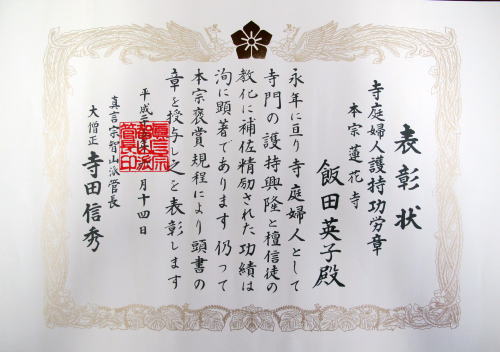 表彰状
寺庭婦人護持功労章
本宗 蓮花寺
飯田英子殿
永年に亘り寺庭婦人として
寺門の護持興隆と檀信徒の
教化に補佐精励された功績は
洵に顕著であります仍って
本宗褒賞規程により頭書の
章を授与し之を表彰します
平成二 月十四日
真言宗智山派管長
大僧正 寺田信秀